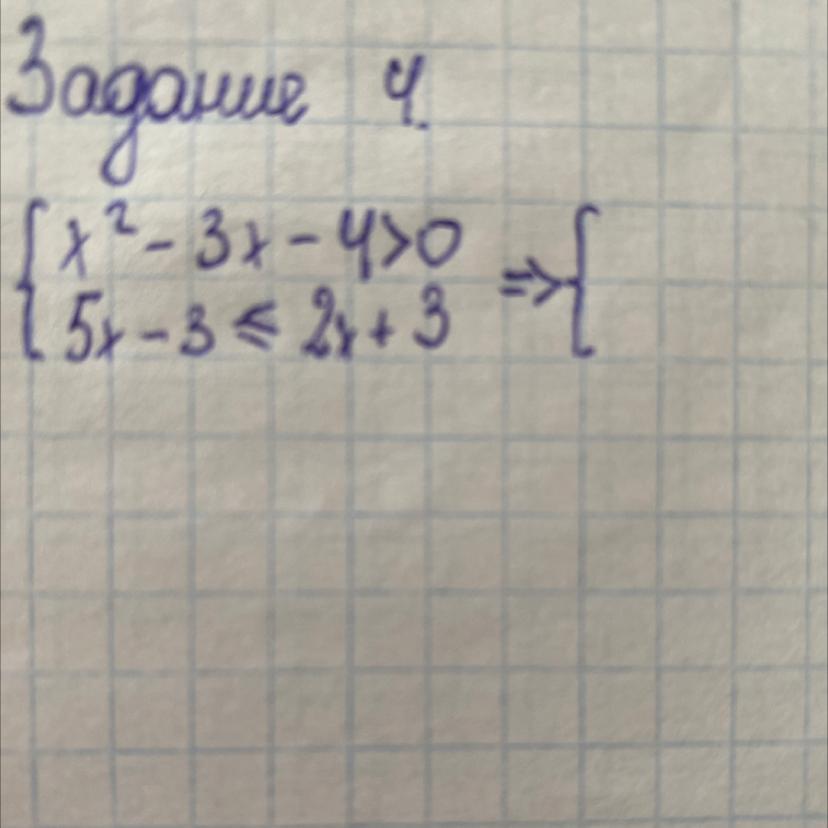 Задание 4.
{ x² - 3x - 4 > 0
5x - 3 ⩽ 2x + 3 ⇒ {